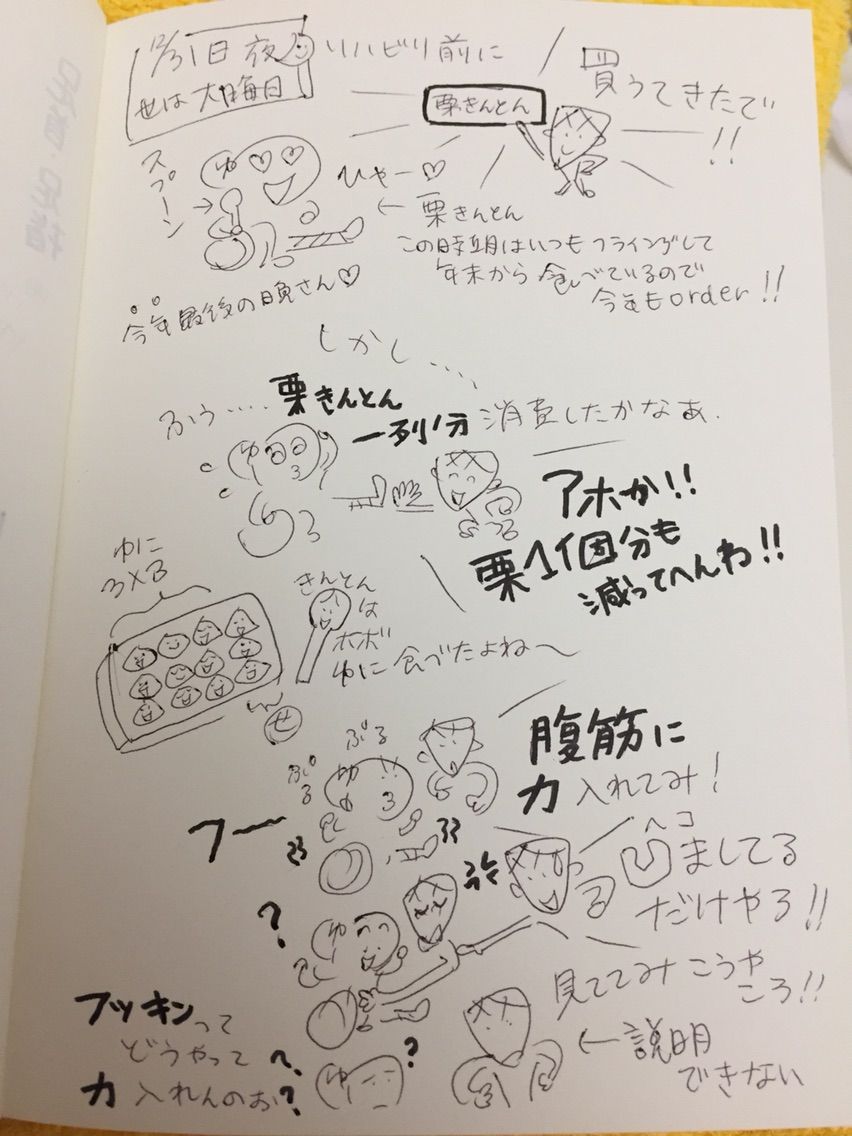 12/31日 夜 リハビリ前に
世は大晦日
栗きんとん
買うてきたで!!
スプーン
ゆ
ひゃー♡
← 栗きんとん
この時期はいつもフライングして
年末から食べているので
今年もorder!!
今年最後の晩さん♡
しかし....
ふぅ....栗きんとん
一列分消費したかなぁ.
ゆ
アホか!!
栗1個分も
減ってへんわ!!
ゆに
3×3
きんとん
は
ほぼ
ゆに食べたよね〜
ぷる
ぷる
ゆ
腹筋に
力入れてみ!
フー
ヘコ
凹ましてる
だけやろ!!
?
ゆ
見ててみ こうや
ころ!!
フッキンって
どうやって
力入れんのぉ?
?
?
ゆ
←説明
できない